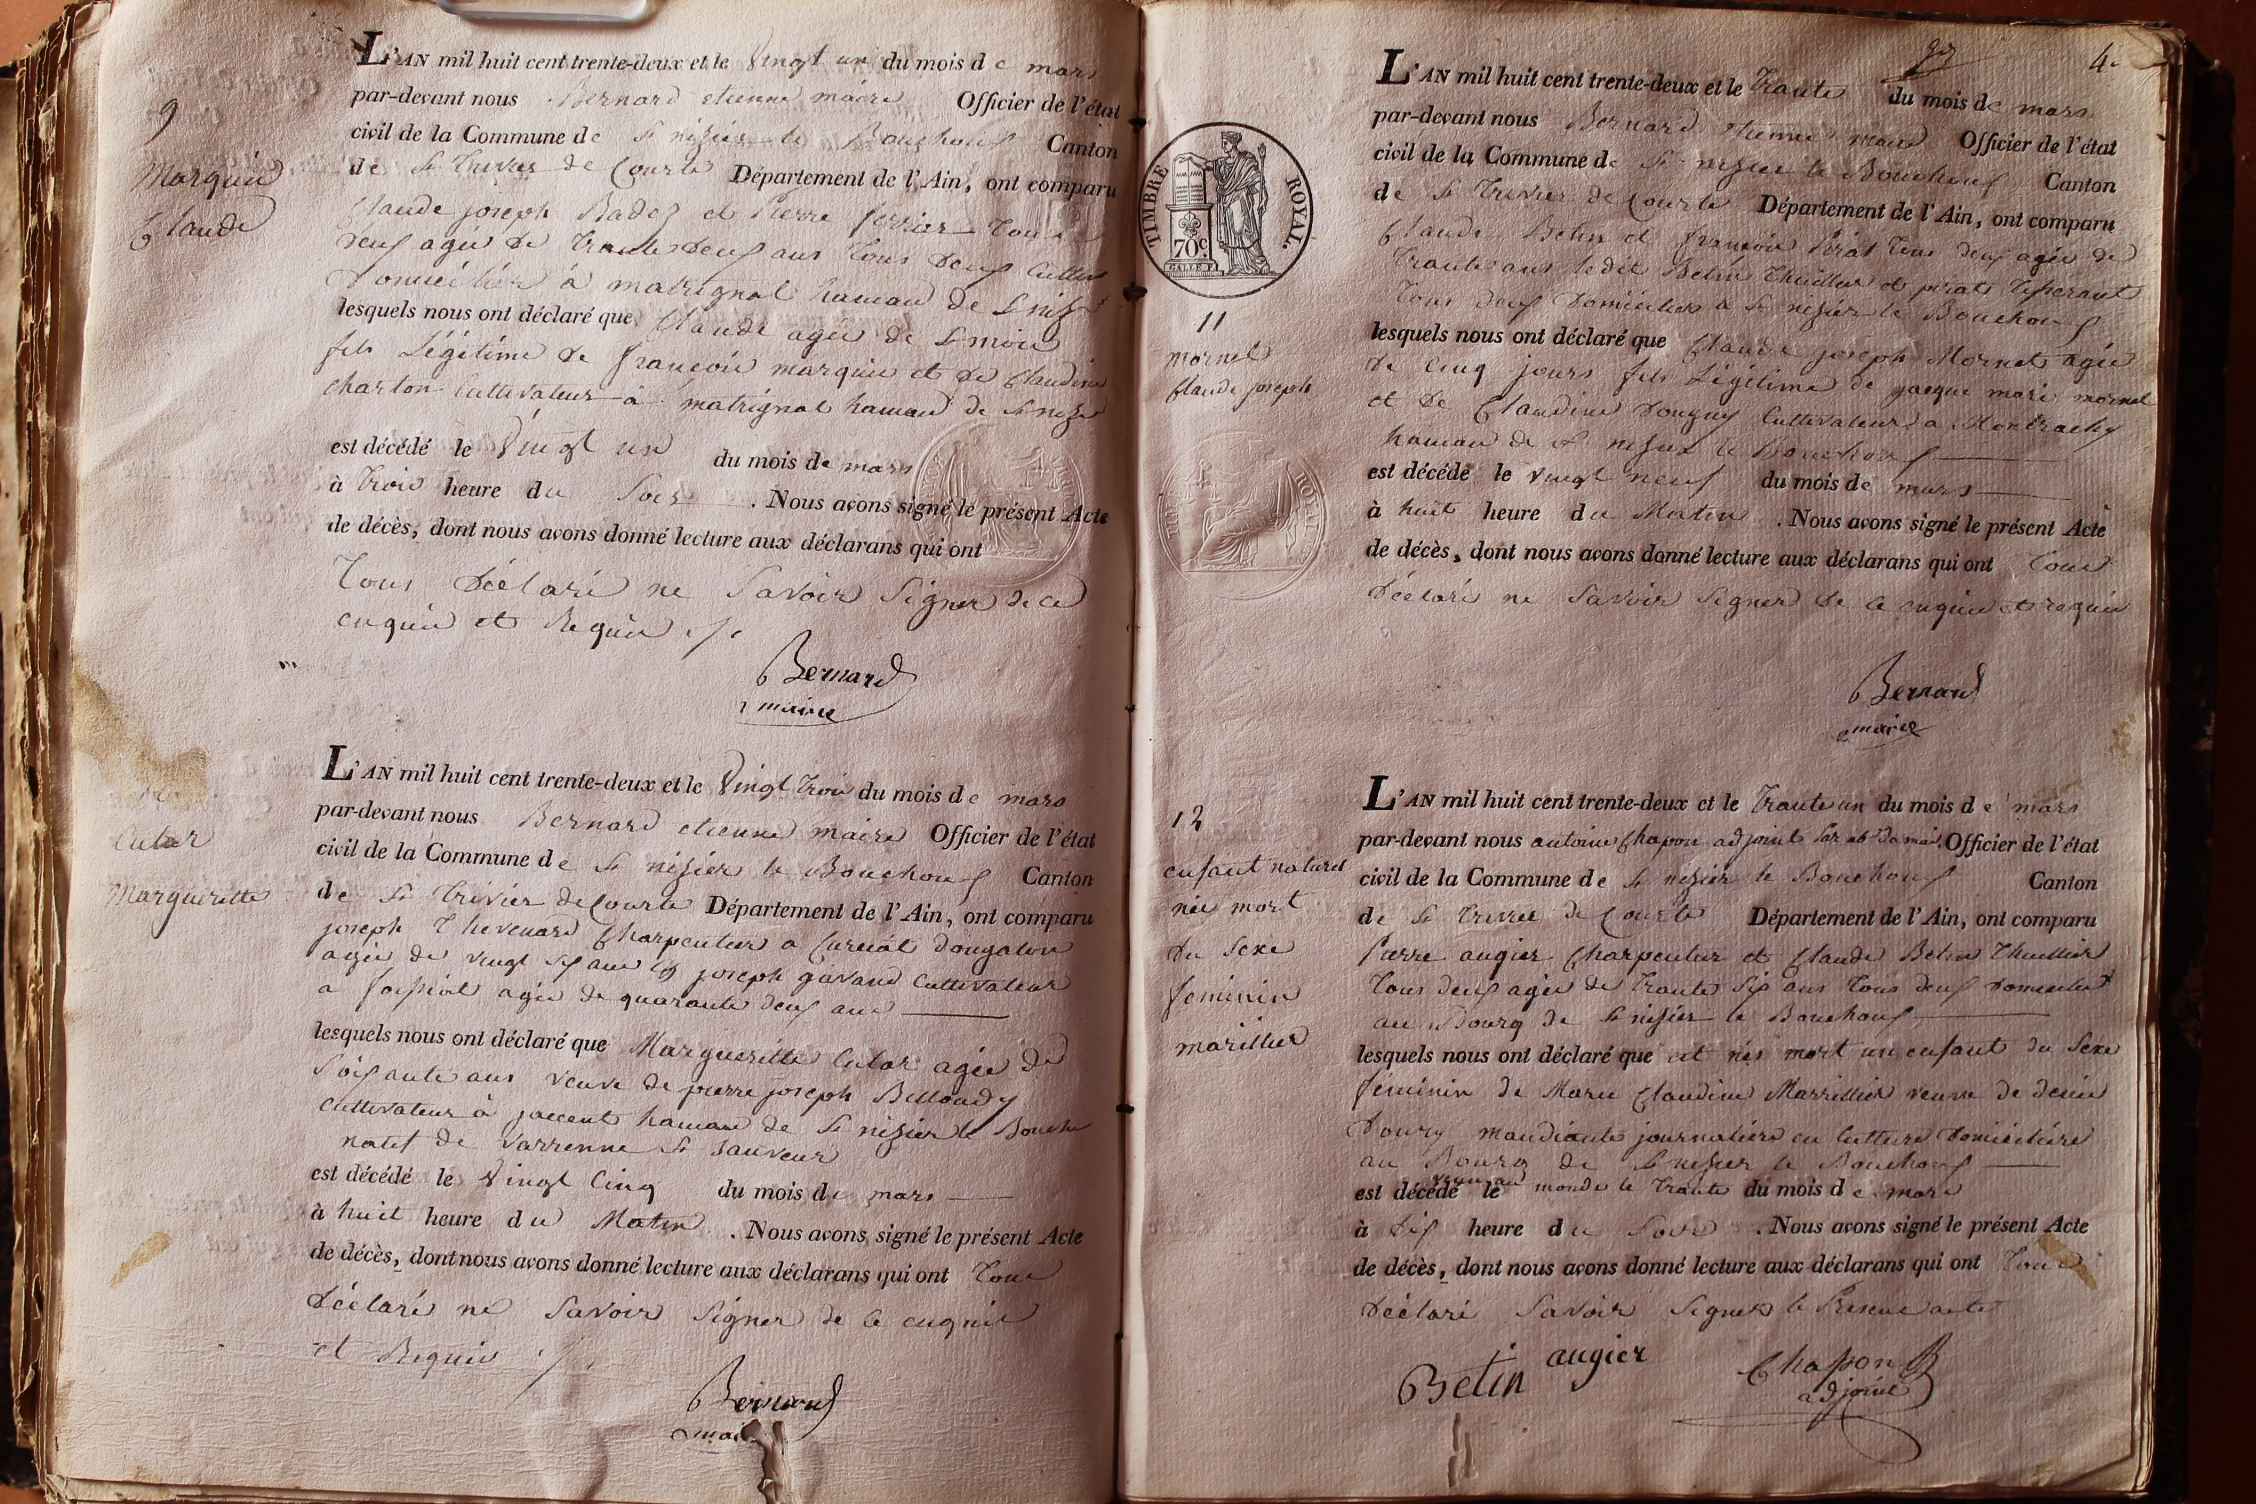 9
Marquis
Claude
L'AN mil huit cent trente-deux et le Vingt un du mois de mars
par-devant nous Bernard etienne maire Officier de l'état
civil de la Commune de St nizier le Bouchoux Canton
de St trivier de Courte Département de l'Ain, ont comparu
Claude joseph Badoz et Pierre ferrier tous
deux agés de trante deux ans tous deux Cultivr
Domiciliés à matrignat hameau de St nizr
lesquels nous ont déclaré que Claude agée de 4 mois
fils Légitime de françois marquis et de Claudine
charton Cultivateur à matrignat hameau de St nizr
est décédé le Vingt un du mois de mars
à trois heure du Soir. Nous avons signé le présent Acte
de décès, dont nous avons donné lecture aux déclarans qui ont
tous Déclaré ne Savoir Signer de ce
enquis et Requis ./.
Bernard
maire
Cutar
Margueritte
L'AN mil huit cent trente-deux et le Vingt trois du mois de mars
par-devant nous Bernard etienne maire Officier de l'état
civil de la Commune de St nizier le Bouchoux Canton
de St trivier de Courte Département de l'Ain, ont comparu
joseph thevenard Charpentier a Curciat dongalon
agée de vingt six ans et joseph gavand Cultivateur
a foissiat agée de quarante deux ans
lesquels nous ont déclaré que Margueritte Cutar agée de
Soixante ans veuve de pierre joseph Billoudy
cultivateur à jaccent hameau de St nizier le Bouch
natif de varrenne St Sauveur
est décédé le Vingt Cinq du mois de mars
à huit heure du Matin. Nous avons signé le présent Acte
de décès, dont nous avons donné lecture aux déclarans qui ont tous
Déclaré ne Savoir Signer de Ce enquis
et Requis ./.
Bernard
mai
4
TIMBRE ROYAL.
70c
11
mornet
Claude joseph
L'AN mil huit cent trente-deux et le trante du mois de mars
par-devant nous Bernard etienne maire Officier de l'état
civil de la Commune de St nizier le Bouchoux Canton
de St trivier de Courte Département de l'Ain, ont comparu
Claude Betin et françois Pirat tous deux agée de
trante ans ledit Betin thuillier et pirat tisserant
tous deux Domiciliés à St nizier le Bouchoux
lesquels nous ont déclaré que Claude joseph Mornet agée
de Cinq jours fils Légitime de jacque marie mornet
et de Claudine Douguy Cultivateur à Montrachy
hameau de St nizier le Bouchoux
est décédé le vingt neuf du mois de mars
à huit heure du Matin. Nous avons signé le présent Acte
de décès, dont nous avons donné lecture aux déclarans qui ont tous
Déclaré ne Savoir Signer de Ce enquis et requis
Bernard
maire
12
enfant naturel
née mort
Du Sexe
feminin
marillier
L'AN mil huit cent trente-deux et le trante un du mois de mars
par-devant nous antoine Chapon adjoint Officier de l'état
civil de la Commune de St nizier le Bouchoux Canton
de St trivier de Courte Département de l'Ain, ont comparu
Pierre augier Charpentier et Claude Betin thuillier
tous deux agée de trante Six ans tous deux Domiciliés
au Bourg de St nizier le Bouchoux
lesquels nous ont déclaré que est née mort un enfant du Sexe
féminin de Marie Claudine Marrillier veuve de denis
Doury mandiante journaliere en Culture Domiciliére
au Bourg de St nizier le Bouchoux
est décédé le venu au monde le trante du mois de mars
à Six heure du Soir. Nous avons signé le présent Acte
de décès, dont nous avons donné lecture aux déclarans qui ont tous
Déclaré Savoir Signer le Present acte
Betin augier Chapon
adjoint